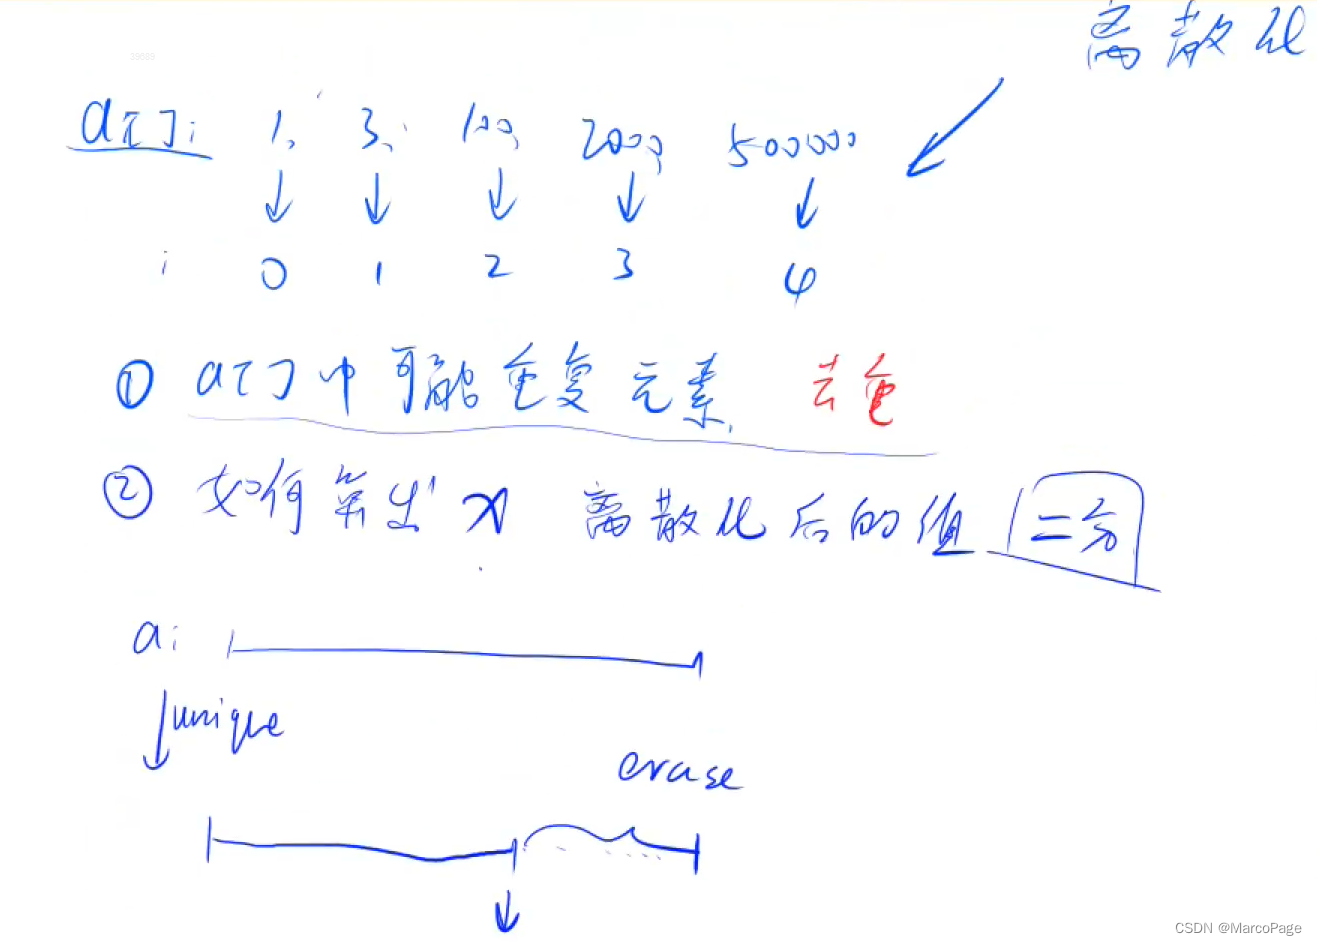 离散化
a[]: 1, 3, 100, 2000, 500000
i 0 1 2 3 4
① a[]中可能重复元素. 去重
② 如何算出 x 离散化后的值 二分
a:
unique
erase
CSDN @MarcoPage